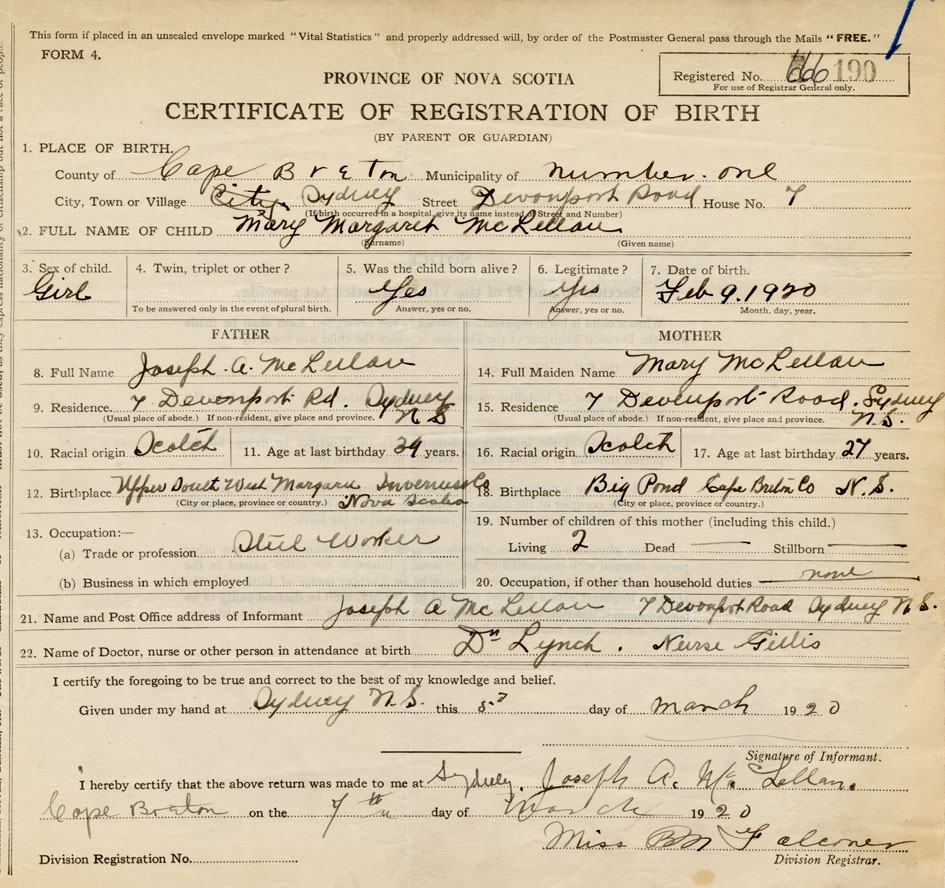 This form if placed in an unsealed envelope marked "Vital Statistics" and properly addressed will, by order of the Postmaster General pass through the Mails "FREE."
FORM 4.
PROVINCE OF NOVA SCOTIA
Registered No. 190
For use of Registrar General only.
CERTIFICATE OF REGISTRATION OF BIRTH
(BY PARENT OR GUARDIAN)
1. PLACE OF BIRTH.
County of Cape Breton Municipality of Number one
City, Town or Village City Sydney Street Devonport Road House No. 7
(If birth occurred in a hospital, give its name instead of Street and Number)
2. FULL NAME OF CHILD Mary Margaret McLellan
(Surname) (Given name)
3. Sex of child. 4. Twin, triplet or other? 5. Was the child born alive? 6. Legitimate? 7. Date of birth.
Girl Yes Yes Feb 9. 1920
To be answered only in the event of plural birth. Answer, yes or no. Answer, yes or no. Month, day, year.
FATHER
8. Full Name Joseph. A. McLellan
9. Residence. 7 Devonport Rd. Sydney N S
(Usual place of abode.) If non-resident, give place and province.
10. Racial origin Scotch 11. Age at last birthday 34 years.
12. Birthplace Upper South West Margaree Inverness Co
(City or place, province or country.) Nova Scotia
13. Occupation:—
(a) Trade or profession Steel Worker
(b) Business in which employed
MOTHER
14. Full Maiden Name Mary McLellan
15. Residence 7 Devenport Road. Sydney N.S.
(Usual place of abode.) If non-resident, give place and province.
16. Racial origin Scotch 17. Age at last birthday 27 years.
18. Birthplace Big Pond Cape Breton Co N.S.
(City or place, province or country.)
19. Number of children of this mother (including this child.)
Living 2 Dead — Stillborn —
20. Occupation, if other than household duties none
21. Name and Post Office address of Informant Joseph A McLellan 7 Devonport Road Sydney N.S.
22. Name of Doctor, nurse or other person in attendance at birth Dr Lynch. Nurse Gillis
I certify the foregoing to be true and correct to the best of my knowledge and belief.
Given under my hand at Sydney N.S. this 5 day of March 1920
Signature of Informant.
I hereby certify that the above return was made to me at Sydney, Joseph A. McLellan.
Cape Breton on the 7th day of March 1920
Miss Falconer
Division Registration No. Division Registrar.